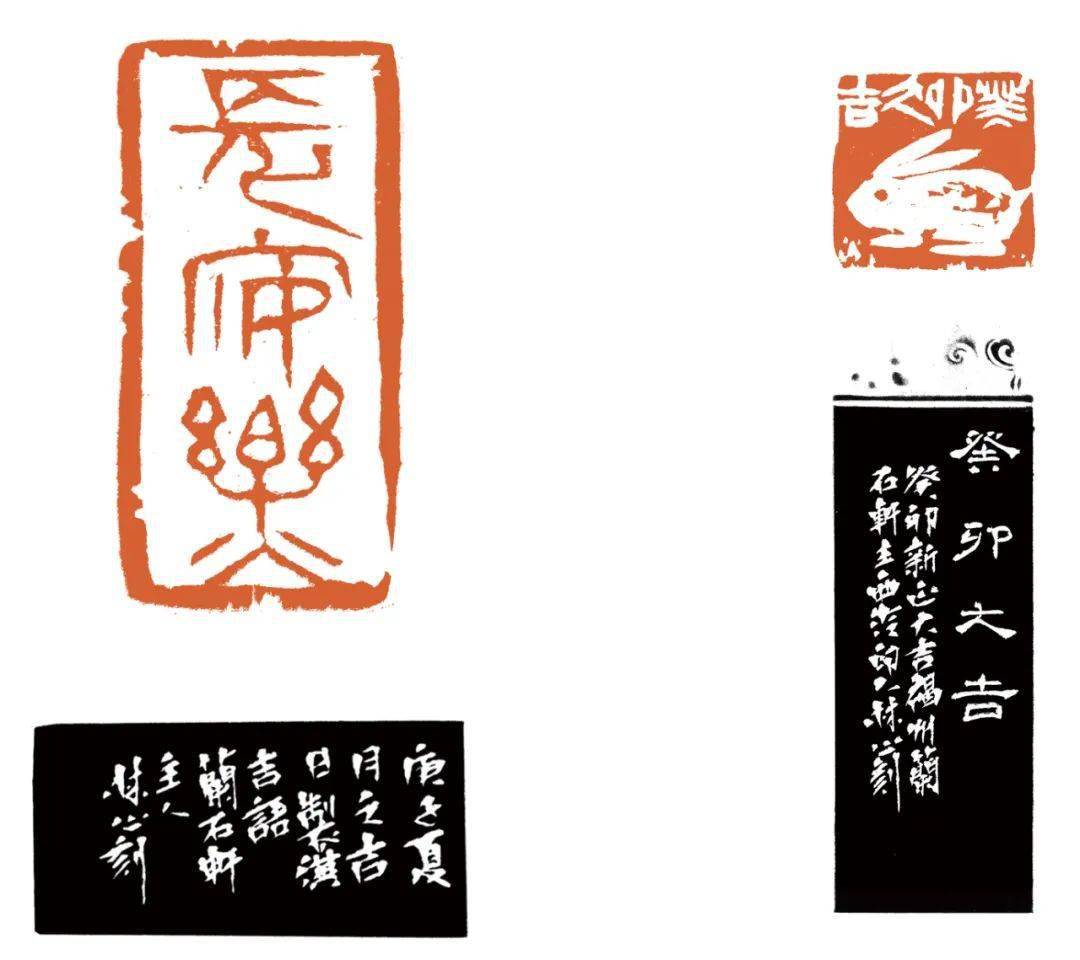 長安樂
癸卯大吉
癸卯大吉
癸卯新正大吉福州蘭
石軒主西泠印人林刻
庚子夏
月之吉
日制漢
吉語
蘭石軒
主人
林刻